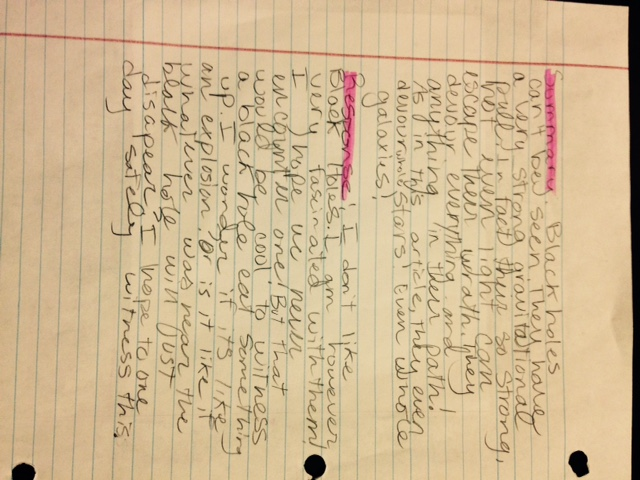 Summary Black holes
can't be seen they have
a very strong gravitational
pull, in fact they so strong,
not even light can
escape their wrath. They
devour everything and
anything in their path!
As in this article, they even
devour whole Stars! Even whole
galaxies!
Response: I don't like
Black Holes. I am however
very fascinated with them!
I hope we never
encounter one! But that
would be cool to witness
a black hole eat something
up. I wonder if its like
an explosion? Or is it like if
whatever was near the
black hole will just
disapear, I hope to one
day safely witness this.